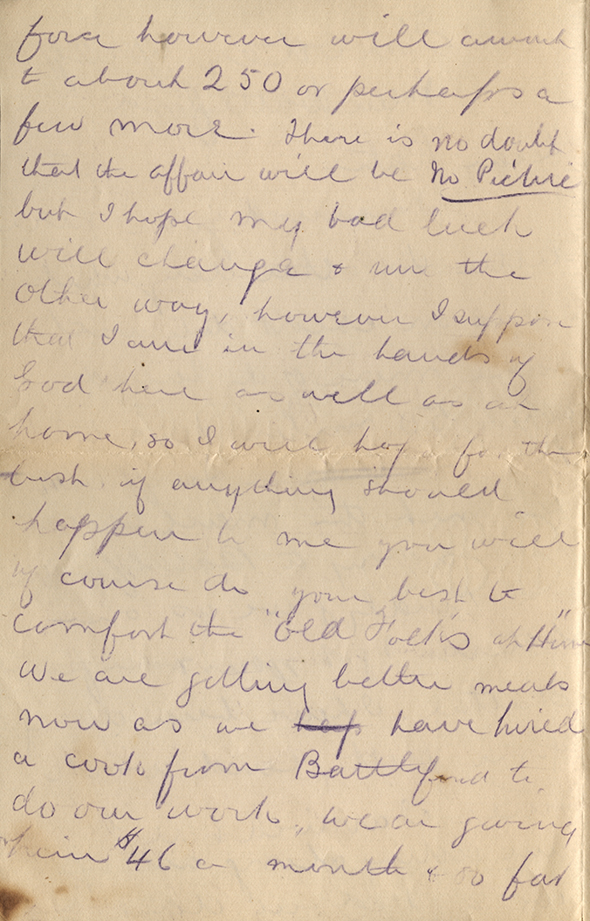 force however will amount
to about 250 or perhaps a
few more. There is no doubt
that the affair will be No Picnic
but I hope my bad luck
will change & run the
other way, however I suppose
that I am in the hands of
God here as well as at
home, so I will hope for the
best. if anything should
happen to me you will
of course do your best to
comfort the "Old Folks at Home"
We are getting better meals
now as we have hired
a cook from Battleford to
do our work, we are giving
him $46 a month & so far